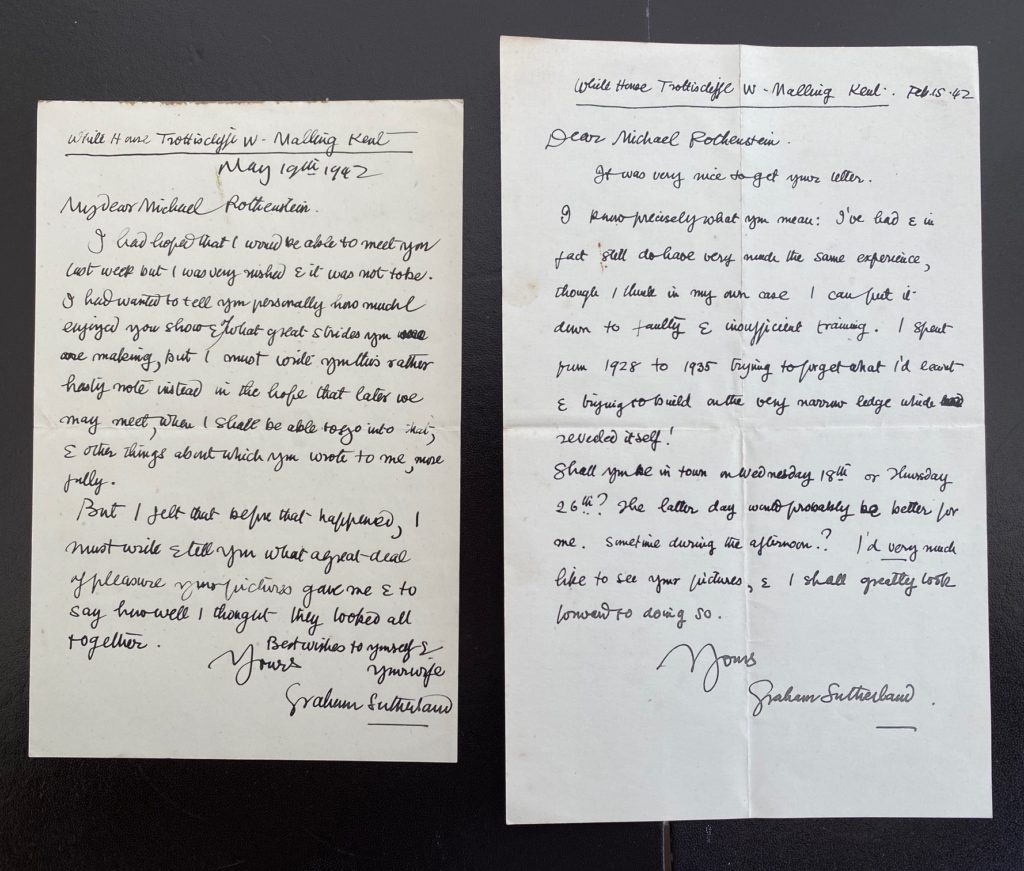 White House Trottiscliffe W - Malling Kent
May 19th 1942
My dear Michael Rothenstein.
I had hoped that I would be able to meet you
last week but I was very rushed & it was not to be.
I had wanted to tell you personally how much I
enjoyed you show & what great strides you
are making, but I must write you this rather
hasty note instead in the hope that later we
may meet, when I shall be able to go into that,
& other things about which you wrote to me, more
fully.
But I felt that before that happened, I
must write & tell you what a great deal
of pleasure your pictures gave me & to
say how well I thought they looked all
together.
Best wishes to yourself &
your wife
Yours
Graham Sutherland
White House Trottiscliffe W - Malling Kent. Feb. 15. 42
Dear Michael Rothenstein.
It was very nice to get your letter.
I know precisely what you mean: I've had & in
fact still do have very much the same experience,
though I think in my own case I can put it
down to faulty & insufficient training. I spent
from 1928 to 1935 trying to forget what I'd learnt
& trying to build on the very narrow ledge which
revealed itself!
Shall you be in town on Wednesday 18th or Thursday
26th? The latter day would probably be better for
me. Sometime during the afternoon.? I'd very much
like to see your pictures, & I shall greatly look
forward to doing so.
Yours
Graham Sutherland.